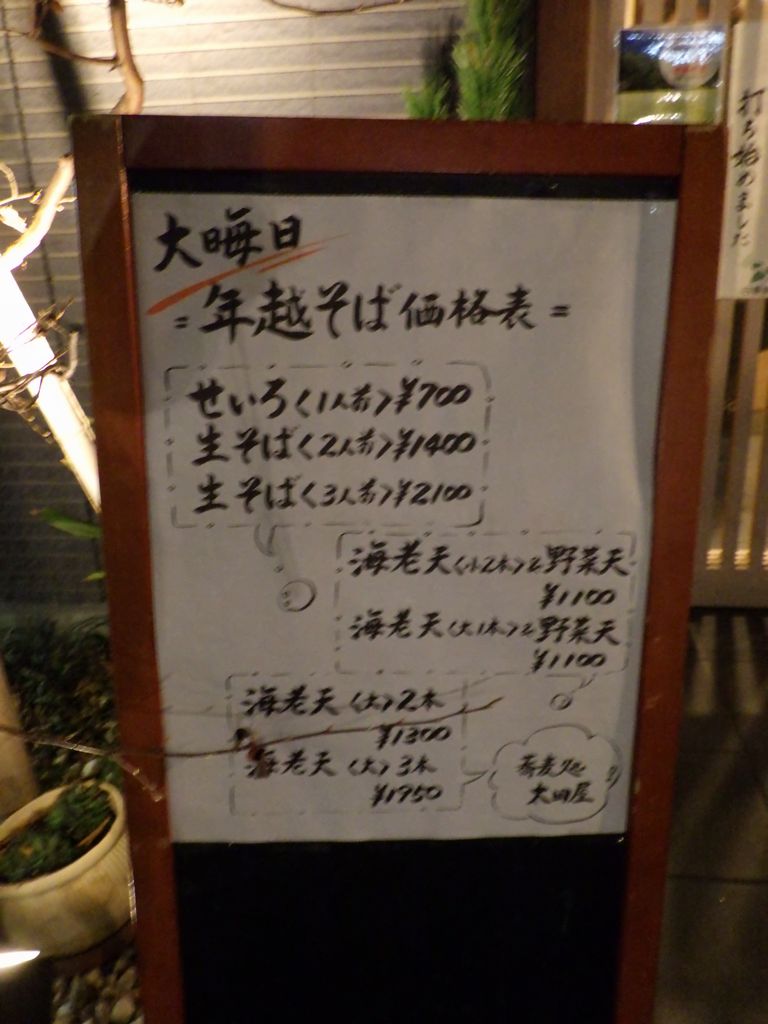 大晦日
=年越そば価格表=
せいろ〈1人前〉¥700
生そば〈2人前〉¥1400
生そば〈3人前〉¥2100
海老天〈小2本〉と野菜天
¥1100
海老天〈大1本〉と野菜天
¥1100
海老天〈大〉2本
¥1300
海老天〈大〉3本
¥1950
蕎麦処
大田屋
打ち始めました